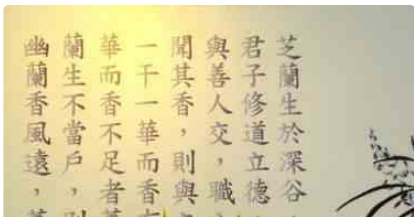 芝蘭生於深谷
君子修道立德
與善人交，職
聞其香，則與
一干一華而香
華而香不足者
蘭生不當戶，別
幽蘭香風遠，